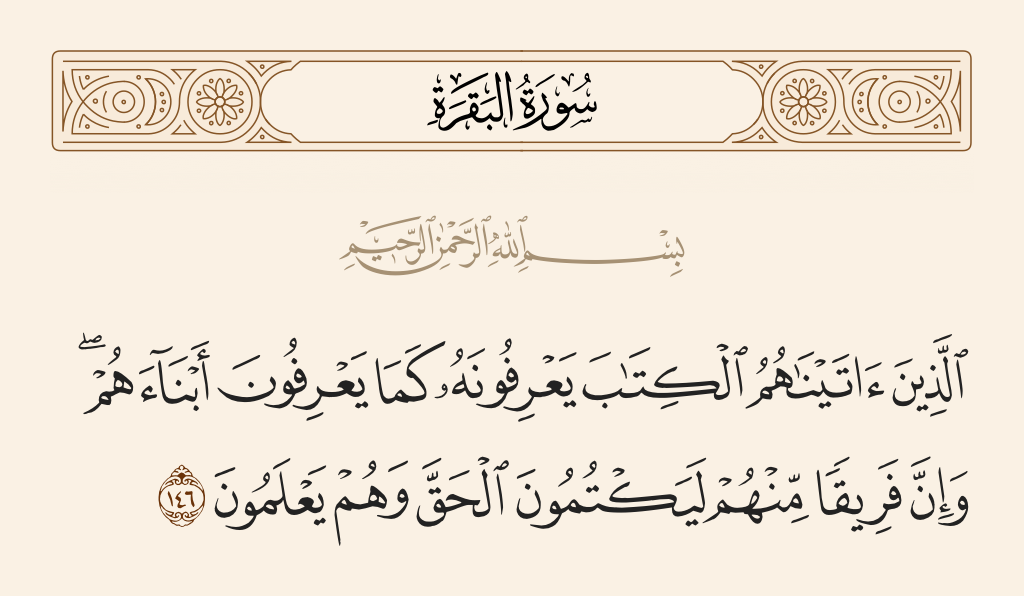 سُورَةُ البَقَرَةِ
بِسْمِ ٱللَّهِ ٱلرَّحْمَٰنِ ٱلرَّحِيمِ
ٱلَّذِينَ ءَاتَيْنَٰهُمُ ٱلْكِتَٰبَ يَعْرِفُونَهُۥ كَمَا يَعْرِفُونَ أَبْنَآءَهُمْ ۖ
وَإِنَّ فَرِيقًا مِّنْهُمْ لَيَكْتُمُونَ ٱلْحَقَّ وَهُمْ يَعْلَمُونَ ١٤٦